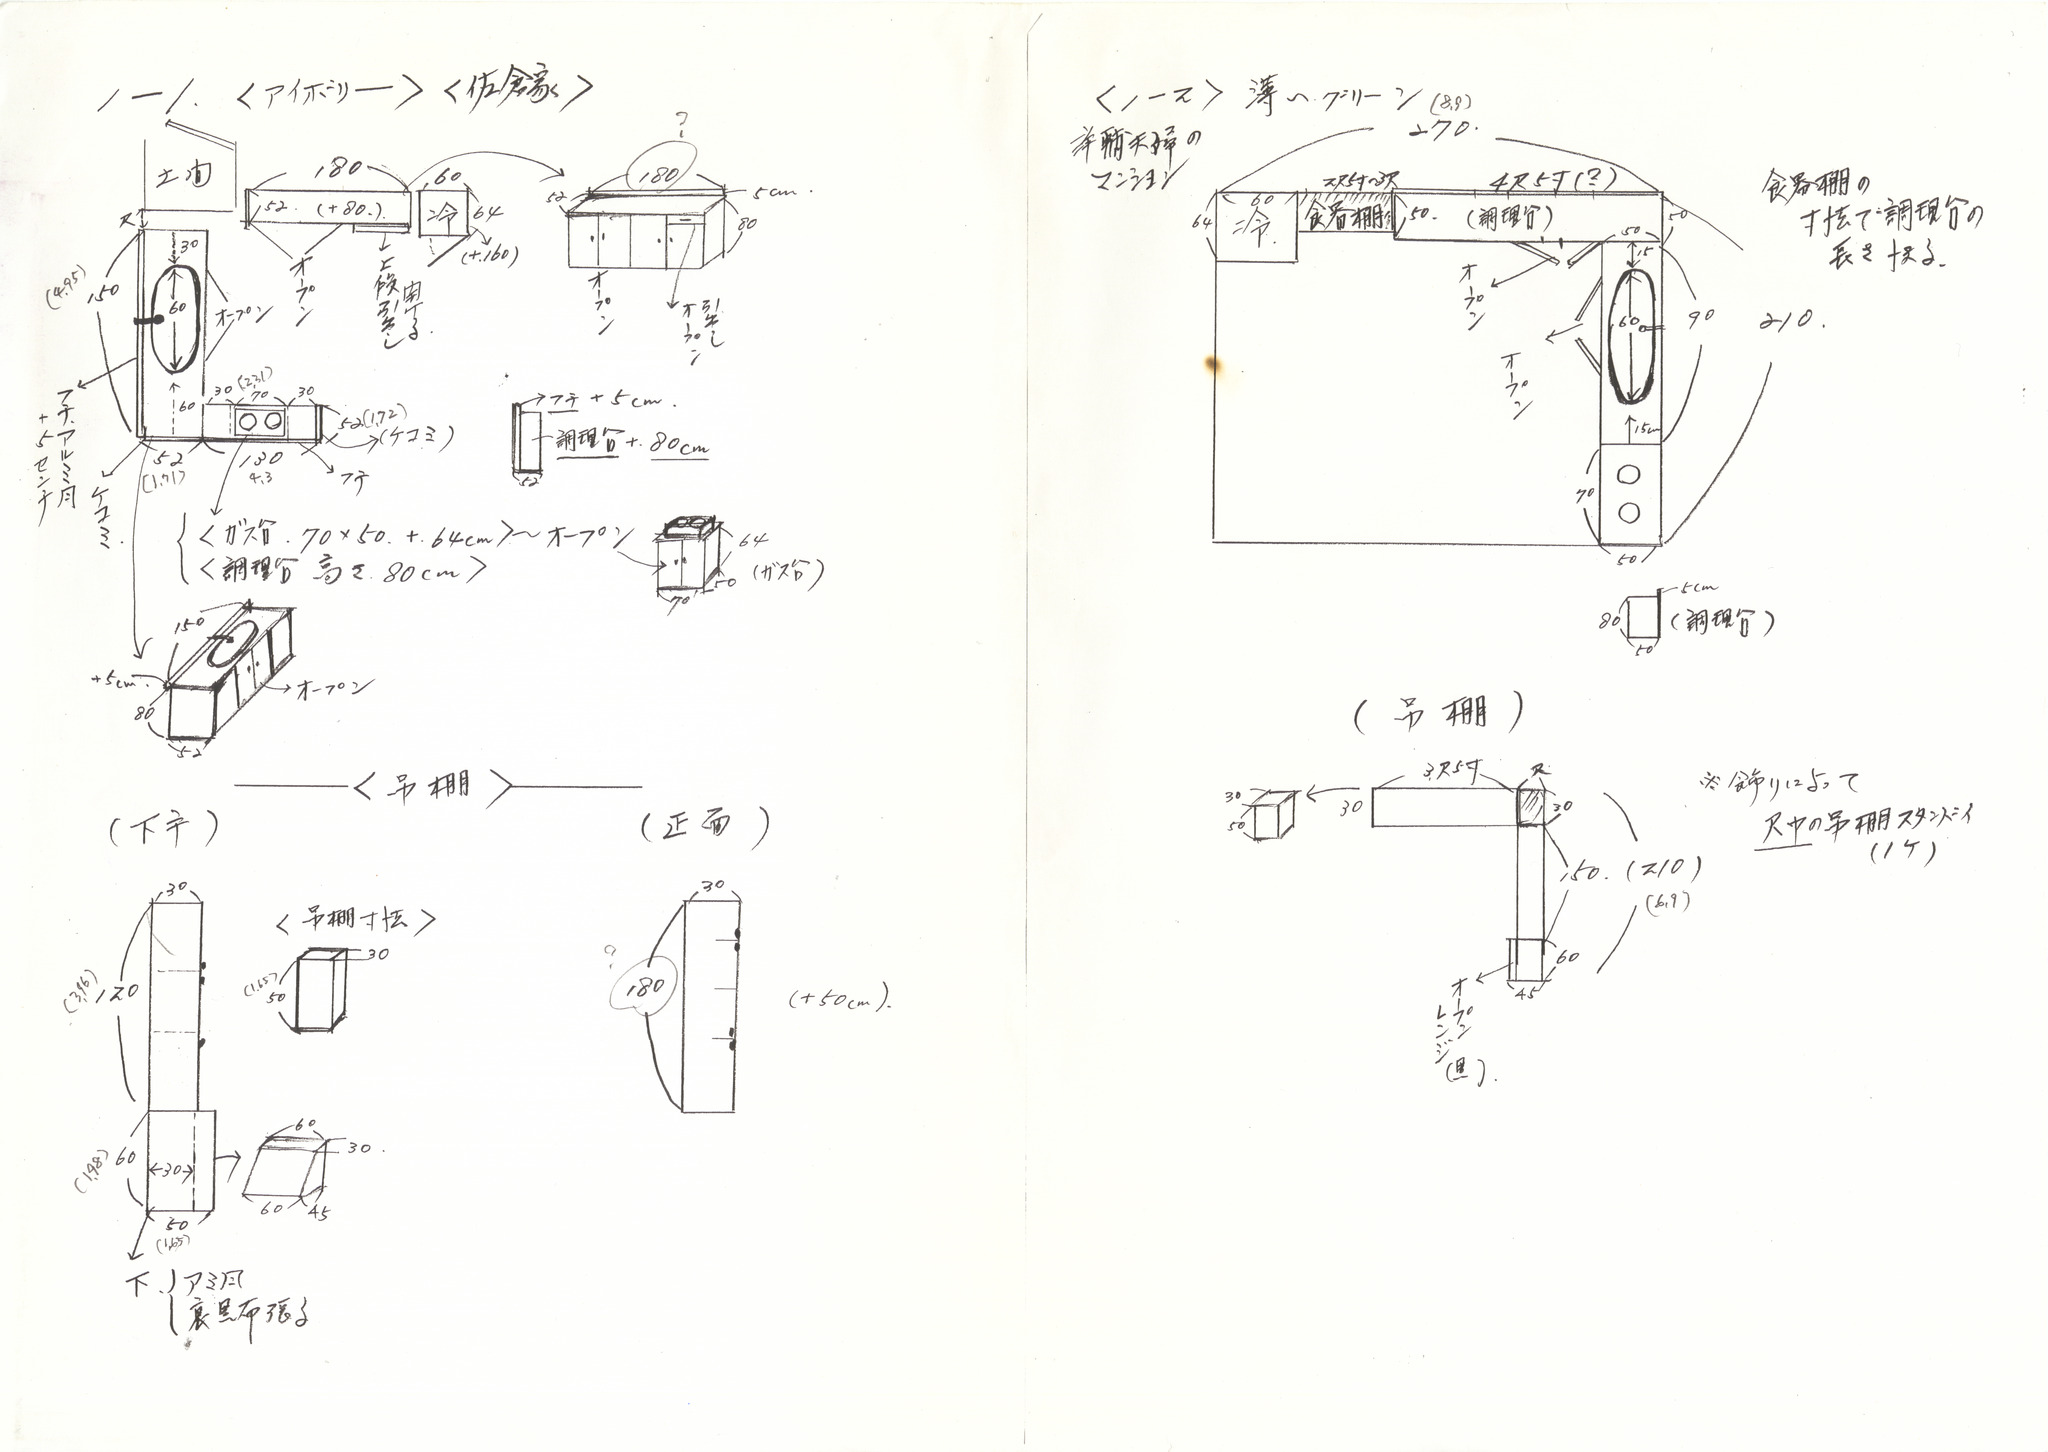 ノーノ. <アイボリー> <佐倉家>
土間
尺
30
60
60
150
(4.95)
オープン
フチ.アルミ貝
+5センチ
ケコミ.
52
(1.71)
130
4.3
フチ
30
(2.31)
70
30
52
(1.72)
(ケコミ)
180
52.
(+80.)
オープン
上段引出し
開ける
60
冷
64
(+.160)
?
180
5cm.
52
80
オープン
引出し
オープン
フチ +5cm.
調理台 +.80cm
52
<ガス台. 70×50. +.64cm>~オープン
<調理台 高さ.80cm>
64
50
70
(ガス台)
150
+5cm.
80
52
オープン
<吊棚>
(下手)
(正面)
30
120
(3.96)
60
(1.98)
30
50
(1.65)
下. アミ貝
裏黒布張る
<吊棚寸法>
30
(1.65)
50
60
30.
60
45
30
?
180
(+50cm).
<ノース> 薄いグリーン
(8.9)
270.
マンション
60
64
冷.
2尺5寸~3尺
食器棚
4尺5寸(?)
50.
(調理台)
50
50
15
オープン
オープン
60
90
210.
15cm
70
50
食器棚の
寸法で調理台の
長さ決る.
5cm
80
50
(調理台)
(吊棚)
30
50
30
3尺5寸
尺
30
150. (210)
(6.9)
60
45
オープン
レンジ
(黒).
※飾りによって
尺巾の吊棚スタンバイ
(1ケ)